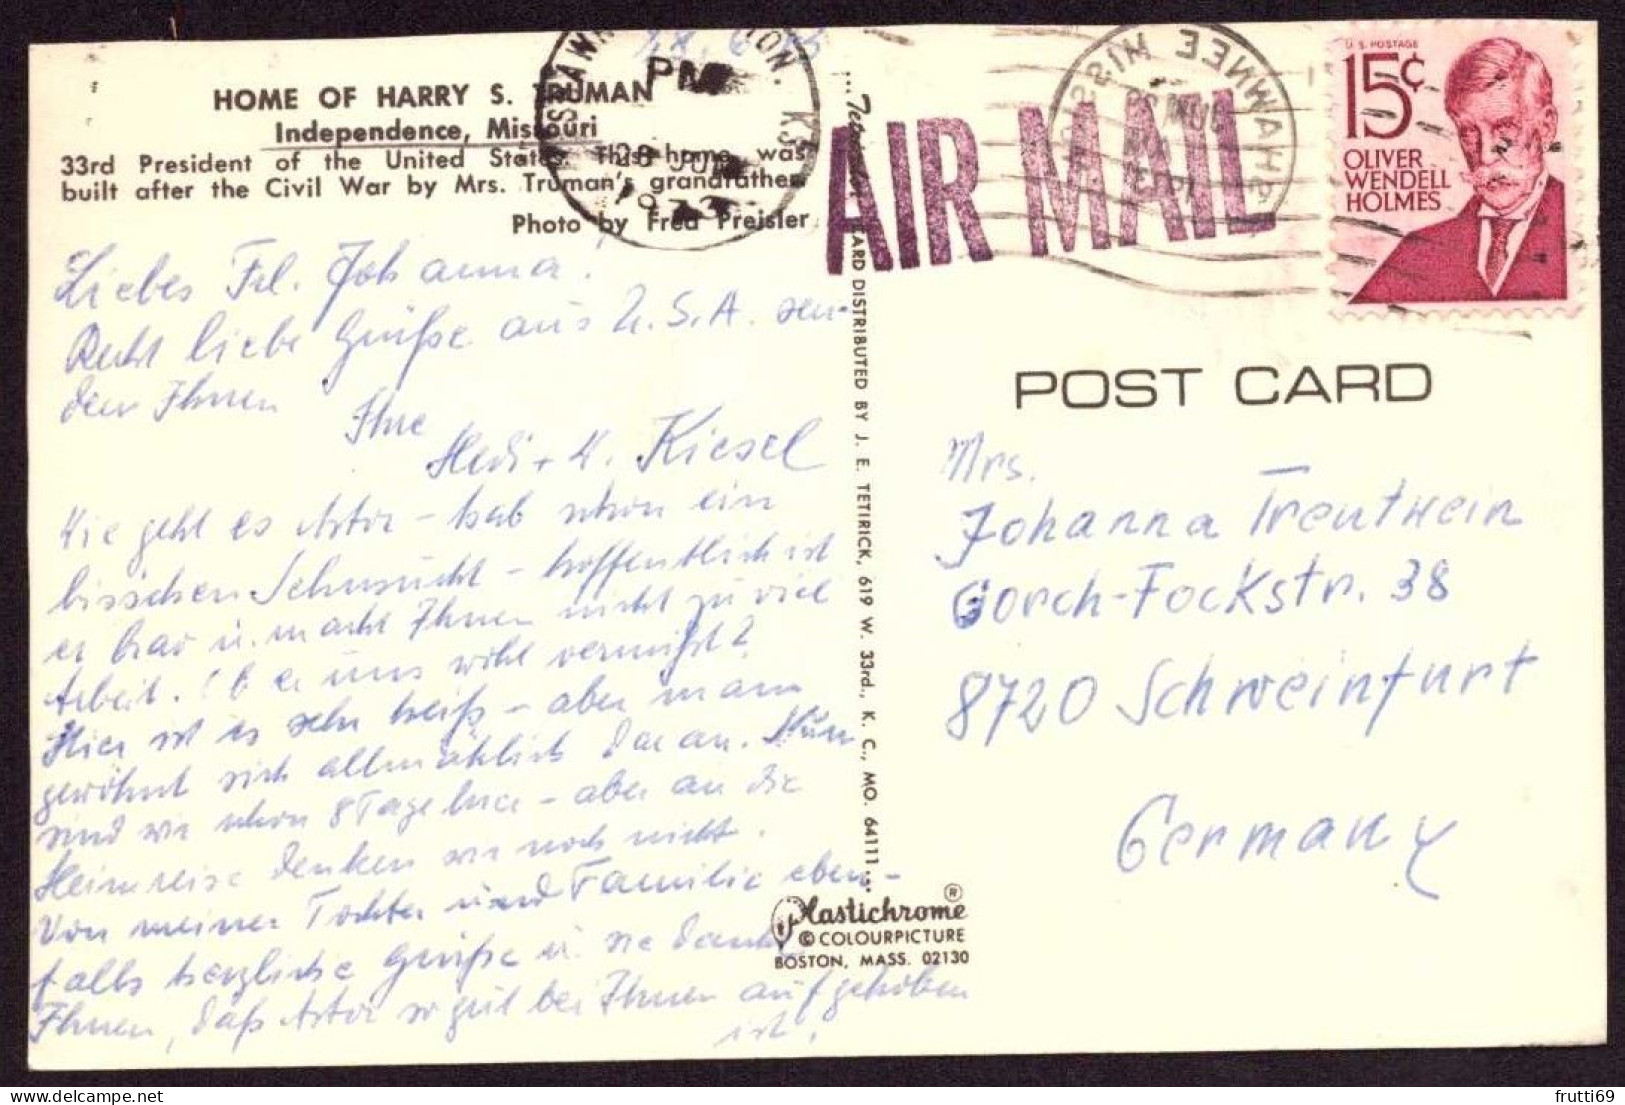 HOME OF HARRY S. TRUMAN
Independence, Missouri
33rd President of the United States. This home was
built after the Civil War by Mrs. Truman's grandfather.
Photo by Fred Preisler
PM
28 JUN
1973
AIR MAIL
SHAWNEE MISSION
U.S. POSTAGE
15¢
OLIVER
WENDELL
HOLMES
POST CARD
Liebes Frl. Johanna!
Recht liebe Grüße aus U.S.A. sen-
den Ihnen
Ihre
Hedi + K. Kiesel
Wie geht es Astor – hab schon ein
bisschen Sehnsucht – hoffentlich ist
er brav u. macht Ihnen nicht zu viel
Arbeit. Ob er uns wohl vermißt?
Hier ist es sehr heiß – aber man
gewöhnt sich allmählich daran. Nun
sind wir schon 8 Tage hier – aber an die
Heimreise denken wir noch nicht.
Von meiner Tochter und Familie eben-
falls herzliche Grüße u. sie danken
Ihnen, daß Astor so gut bei Ihnen aufgehoben
ist.
CARD DISTRIBUTED BY J. E. TETIRICK, 619 W. 33rd., K. C., MO. 64111...
Plastichrome ®
© COLOURPICTURE
BOSTON, MASS. 02130
Mrs.
Johanna Treutwein
Gorch-Fockstr. 38
8720 Schweinfurt
Germany
frutti69